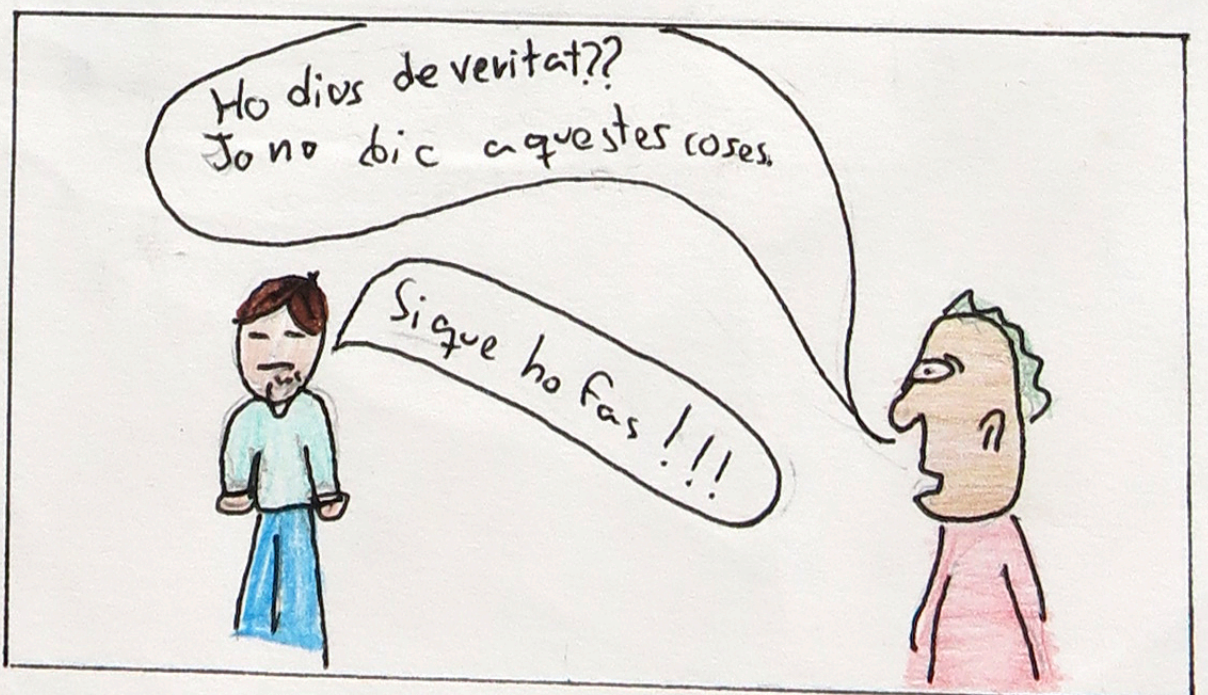 Ho dius de veritat??
Jo no dic aquestes coses.
Si que ho fas!!!